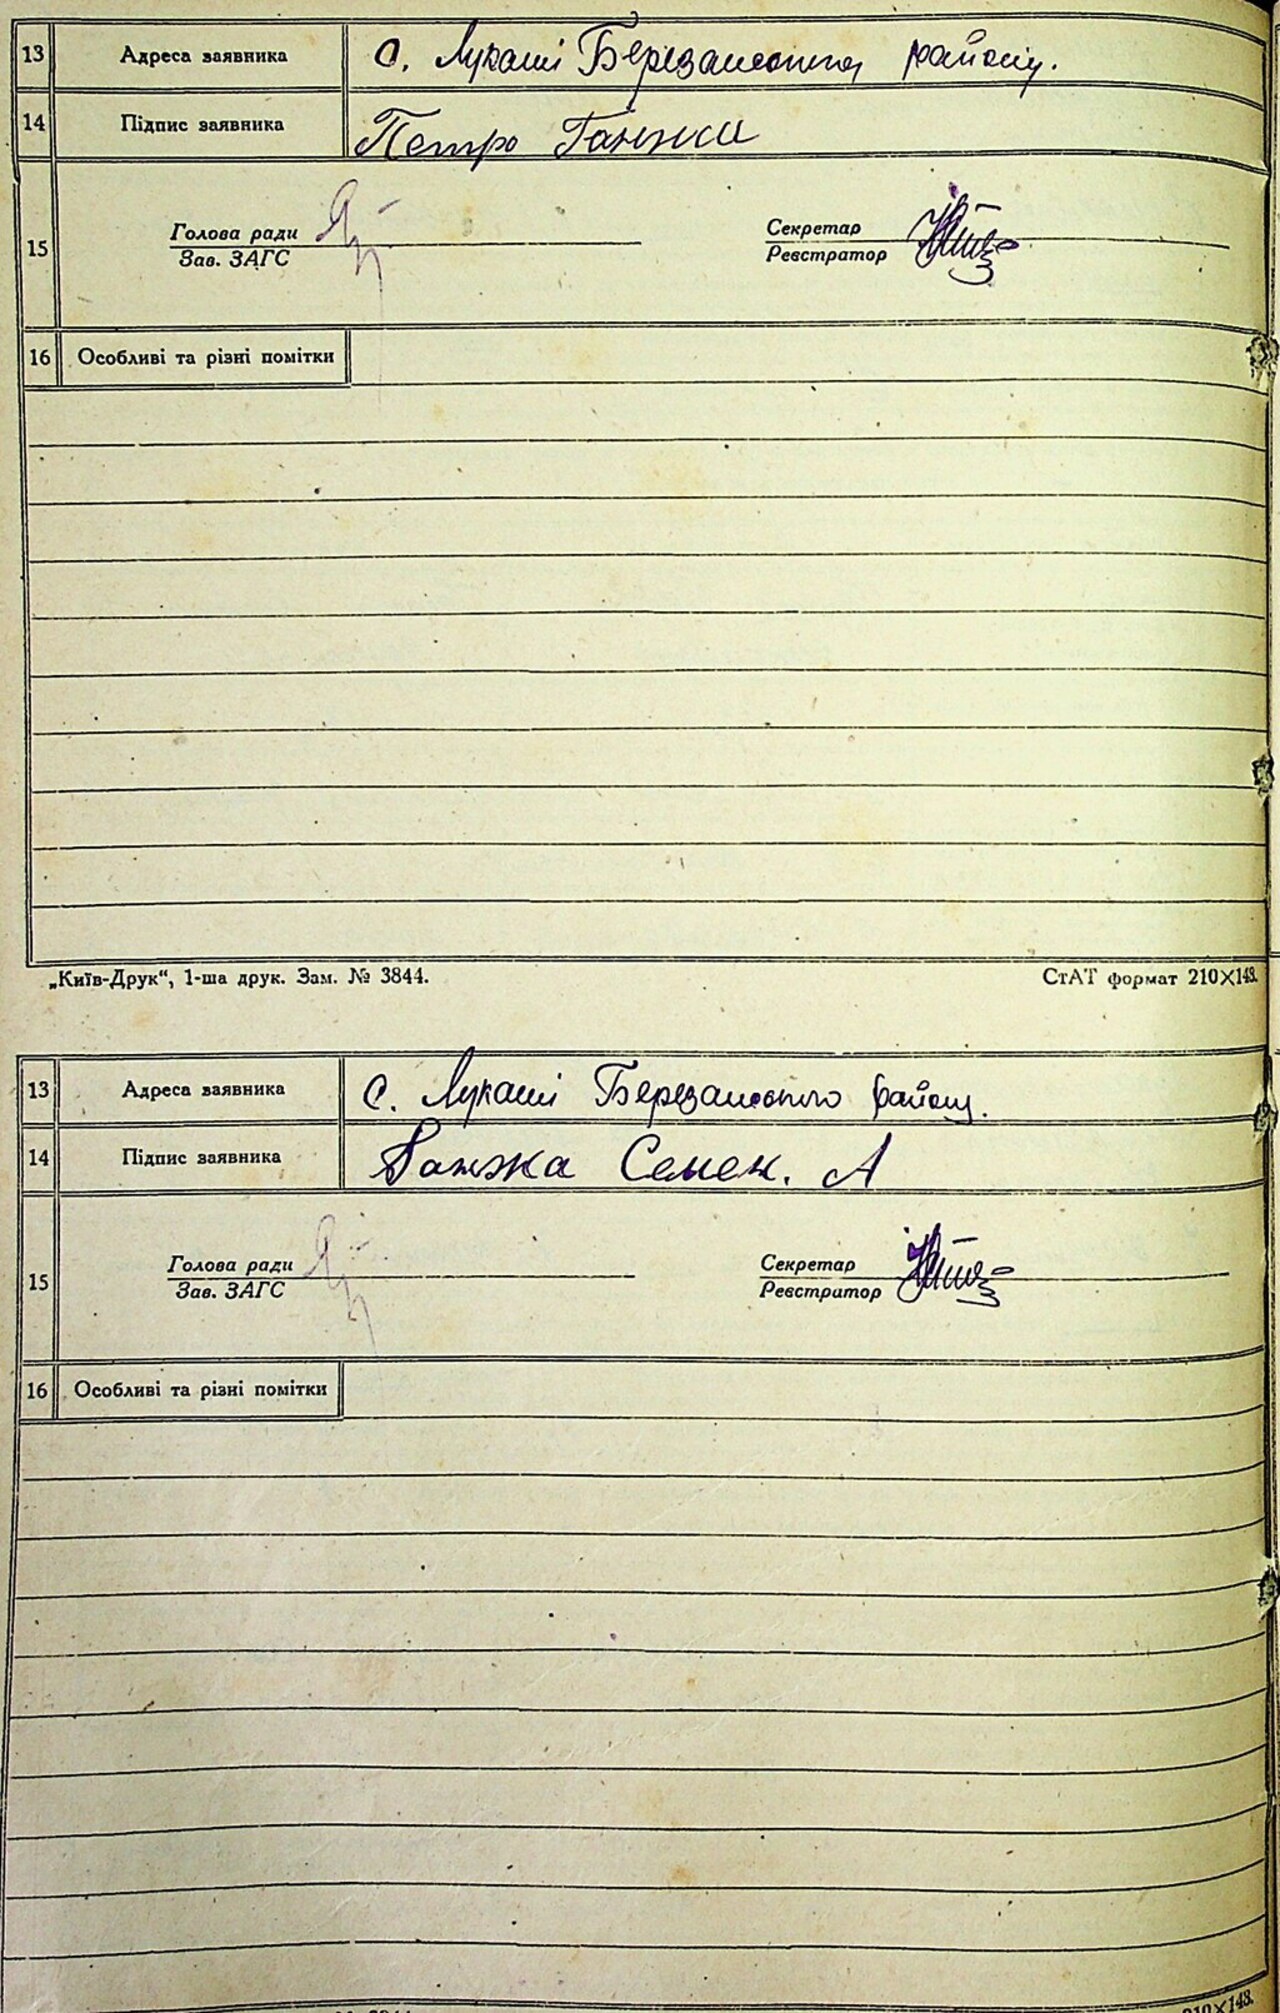 13 Адреса заявника с. Лукаші Березанського району.
14 Підпис заявника Петро Ганжа
15 Голова ради Секретар
Зав. ЗАГС Реєстратор
16 Особливі та різні помітки
„Київ-Друк“, 1-ша друк. Зам. № 3844. СтАТ формат 210×148.
13 Адреса заявника с. Лукаші Березанського району.
14 Підпис заявника Ганжа Семен. А
15 Голова ради Секретар
Зав. ЗАГС Реєстратор
16 Особливі та різні помітки
210×148.